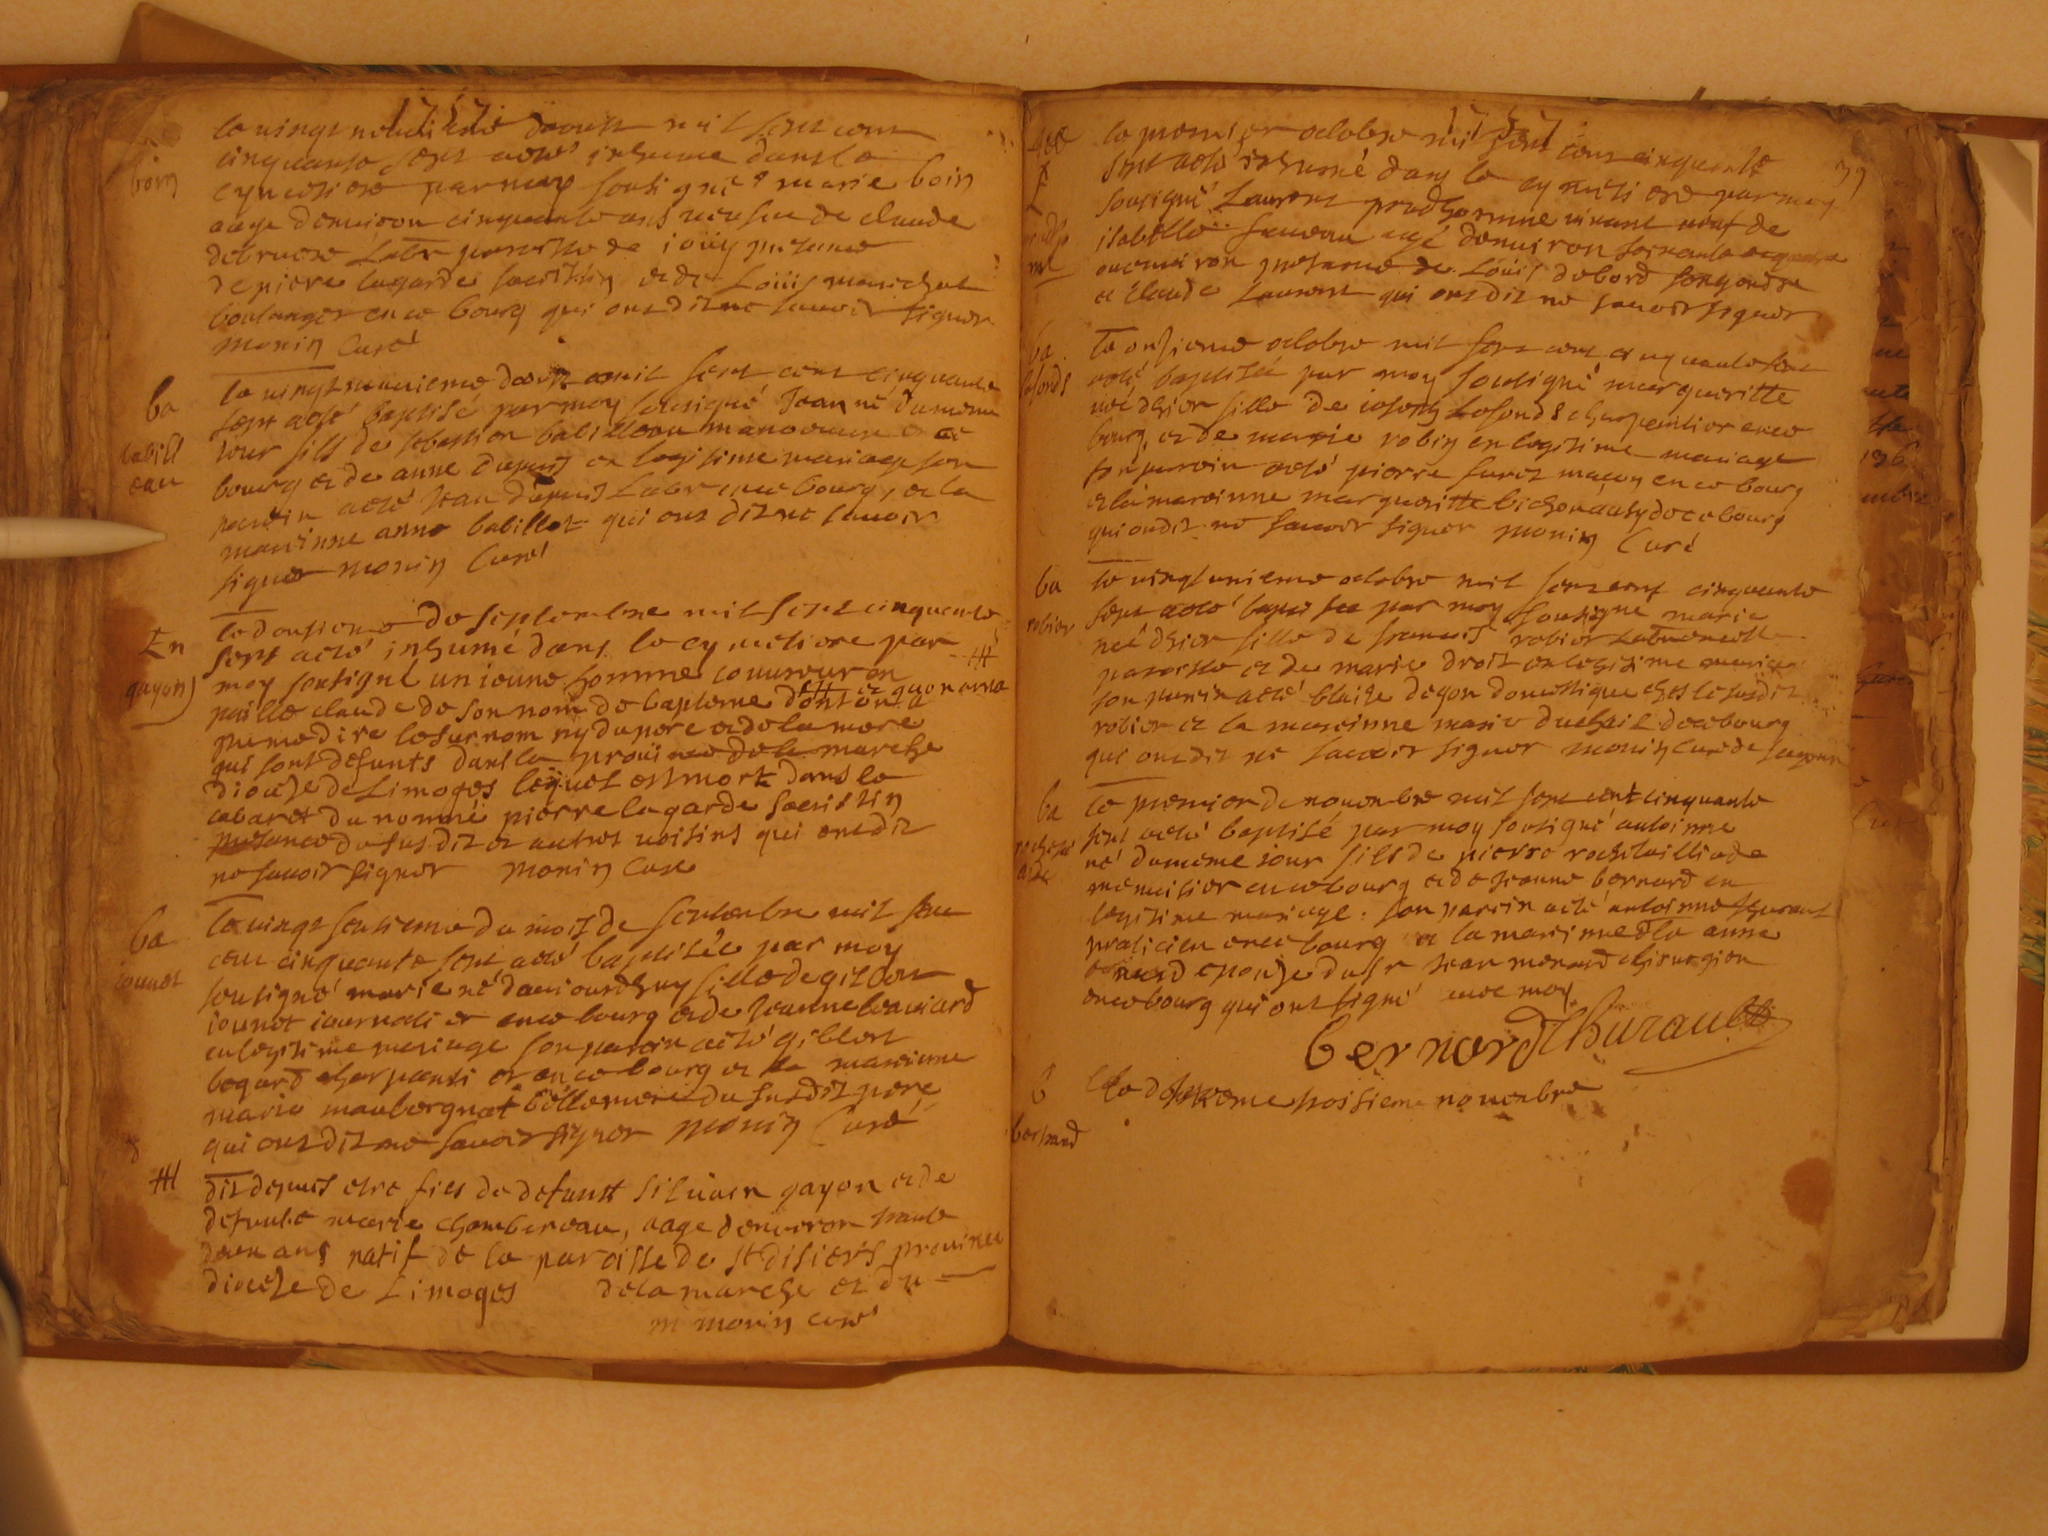 1757
le vingt neufvieme daoust mil sept cent
boin
cinquante sept a eté inhumé dans le
cymetiere par moy sousigné marie boin
aage denviron cinquante ans veufve de claude
debruere Labr paroisse de joüy presence
de piere lagarde sacristin et de Loüis marichat
boulanger en ce bourg qui ont dit ne savoir signer
monin Curé
ba
babill
eau
le vingt neuvieme daoust mil sept cent cinquante
sept a eté baptisé par moy sousigné Jean né du meme
jour fils de sebastien babilleau manoeuvre en ce
bourg et de anne dupuis en legitime mariage son
parein a eté Jean dupuis Labr en ce bourg, et la
mareinne anne babillot qui ont dit ne savoir
signer monin Curé
En
gayon
le douzieme de septembre mil sept cinquante
sept a eté inhumé dans le cymetiere par
moy sousigné un jeune homme couvreur en
paille claude de son nom de bapteme dont on a
pu me dire le surnom ny du pere et de la mere
qui sont defunts dans la province de la marche
diocese de Limoges lequel est mort dans le
cabaret du nommé pierre lagarde sacristin
presence du susdit et autres voisins qui ont dit
ne savoir signer monin Curé
ba
jounot
le vingt septieme du mois de septembre mil sept
cent cinquante sept a eté baptisée par moy
sousigné marie né daujourdhuy fille de
jounot journalier en ce bourg et de Jeanne
en legitime mariage son parein a eté gilbert
begard charpentier en ce bourg et la mareinne
marie maubergnat bellemere du susdit pere
qui ont dit ne savoir signer monin Curé
dit depuis etre fils de defunt silvain gayon et de
defunte marie chambereau, aage denviron trante
deux ans natif de la paroisse de St disiers province
diocese de Limoges de la marche et du
monin curé
1757
39
le premier octobre mil sept cent cinquante
sept a eté inhumé dans le cymetiere par moy
sousigné Laurent prudhomme vivant veuf de
isabelle faveau agé denviron soixante
ou environ presence de Loüis debord
et claude Laurent qui ont dit ne savoir signer
ba
lafonds
le onzieme octobre mil sept cent cinquante sept
a eté baptisée par moy sousigné margueritte
neé dhier fille de joseph Lafonds charpentier en ce
bourg, et de marie robin en legitime mariage
son parein a eté pierre furet maçon en ce bourg
et la mareinne margueritte bichon aussy de ce bourg
qui ondit ne savoir signer monin Curé
ba
robier
le vingtunieme octobre mil sept cent cinquante
sept a eté baptisée par moy sousigné marie
neé dhier fille de francois robier
paroisse et de marie droit en legitime mariage
son parein a eté blaize degon domestique ches le susdit
robier et la mareinne marie duchail de ce bourg
qui ont dit ne savoir signer monin Curé de
ba
le premier de novembre mil sept cent cinquante
sept a eté baptisé par moy sousigné antoinne
né du meme jour fils de pierre rochetailliade
menuisier en ce bourg et de jeanne bernard en
legitime mariage: son parein a eté antoinne thurault
praticien en ce bourg et la mareinne dlle anne
bernard epouze du sr jean menard chirurgien
en ce bourg qui ont signé avec moy
bernard Thurault
b
bernard
novembre